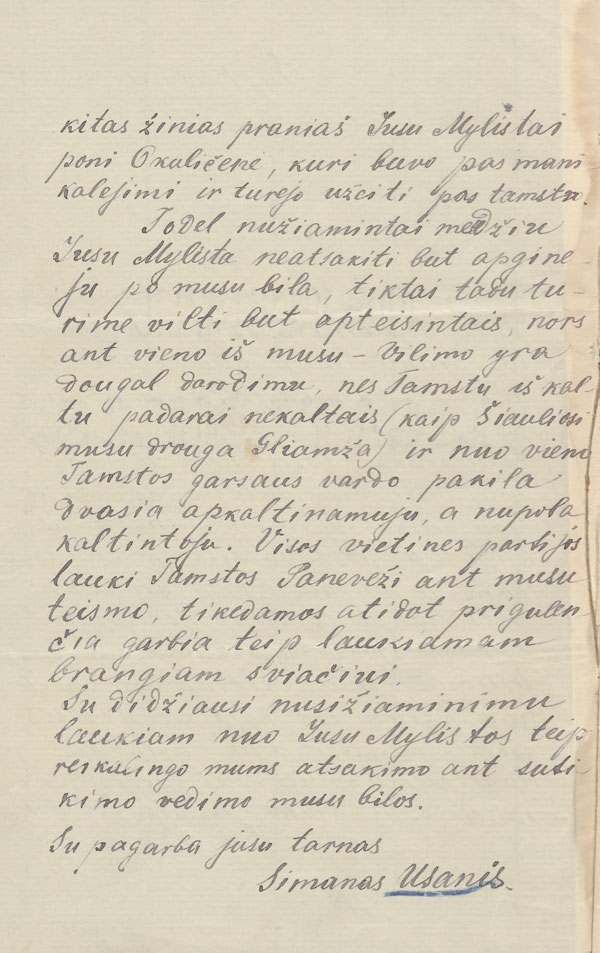 kitas žinias praniaš Jusu Mylistai
poni Okuličene, kuri buvo pas mani
kalejimi ir turejo užeiti pas tamstu.
Todel nužiamintai medžiu
Jusu Mylista neatsakiti but apgine-
ju po musu bila, tiktai tadu tu-
rime vilti but apteisintais, nors
ant vieno iš musu - Vilimo yra
dougal darodimu, nes Tamstu iš kal-
tu padarai nekaltais (kaip Šiauliosi
musu drouga Gliamža) ir nuo vieno
Tamstos garsaus vardo pakila
dvasia apkaltinamuju, a nupola
kaltintoju. Visos vietines partijos
lauki Tamstos Paneveži ant musu
teismo, tikedamos atidot prigulen-
čia garbia teip laukiamam
brangiam sviačiui.
Su didžiausi nusižiaminimu
laukiam nuo Jusu Mylistos teip
reikalingo mums atsakimo ant suti-
kimo vedimo musu bilos.
Su pagarba jusu tarnas
Simanas Usanis.